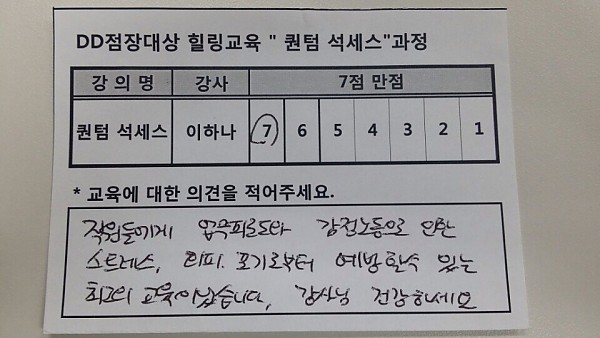 DD점장대상 힐링교육 " 퀀텀 석세스"과정
강 의 명 강사 7점 만점
퀀텀 석세스 이하나 7 6 5 4 3 2 1
* 교육에 대한 의견을 적어주세요.
직원들에게 업무피로도와 감정노동으로 인한
스트레스, 회피. 포기로부터 예방할수 있는
최고의 교육이었습니다, 강사님 건강하세요